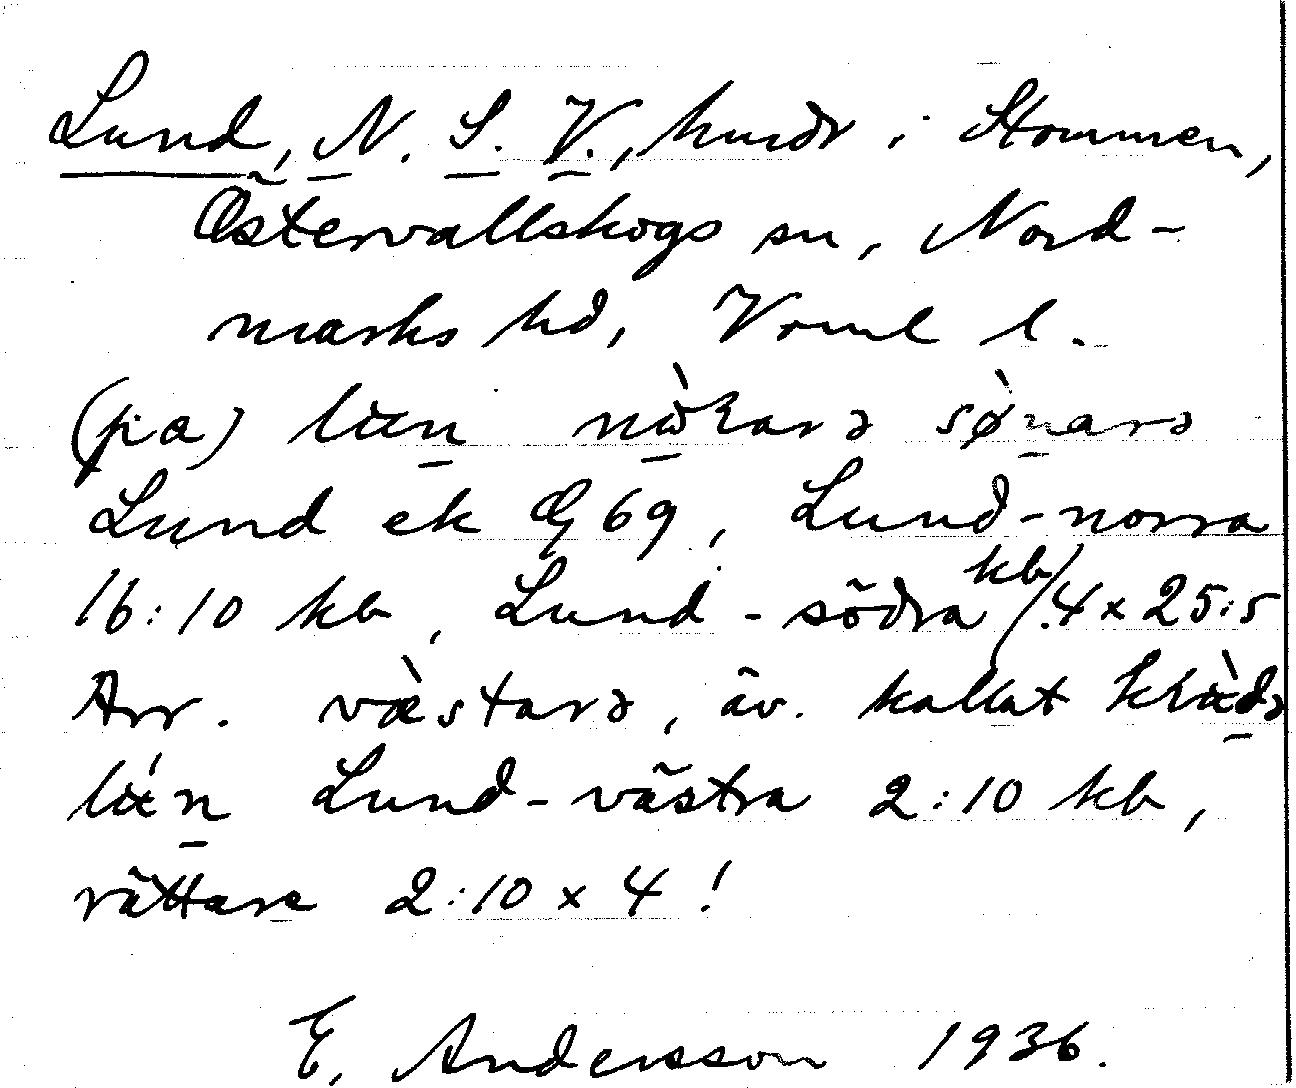 Lund, N. S. V., hmdr i Stommen,
Östervallskogs sn, Nord-
marks hd, Vrml l.
(pi a) lɯn nòrarə sø̀narə
Lund ek Q 69, Lund-norra
16:10 kb, Lund-södra kb/.4x25:5
Arr. væ̀starə, äv. kallat
Lund-västra 2:10 kb,
rättare 2:10 x 4!
E. Andersson 1936.